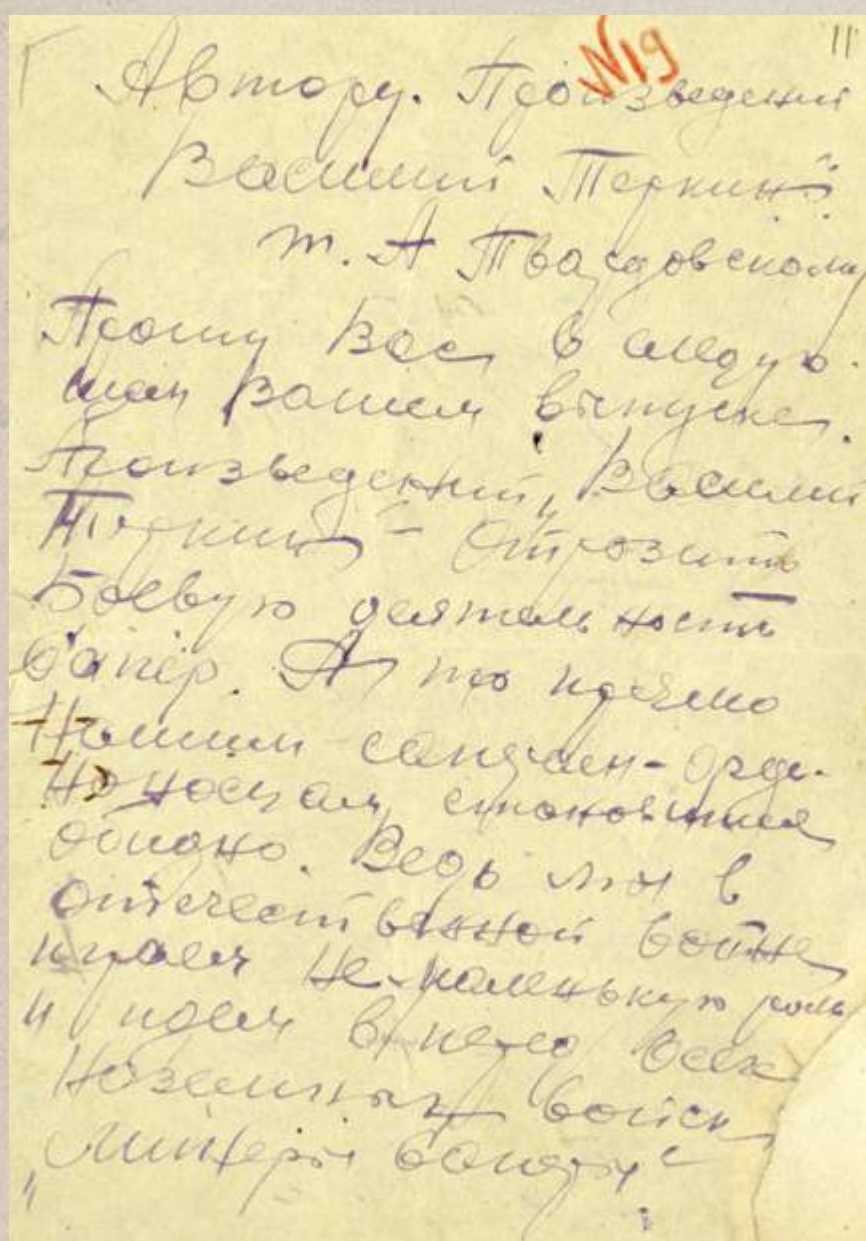 №19
11
Автору. Произведений
Василий Теркин"
т. А Твардовскому
Прошу Вас в следую-
щем Вашем выпуске
Произведений „Василий
Теркин" Отрозить
Боевую деятельность
Сапер. А то
Нашим орде-
ноносцам становится
обидно. Ведь мы в
отечественной войне
играем не маленькую роль
и идем всех
Наземных войск
„Минеры